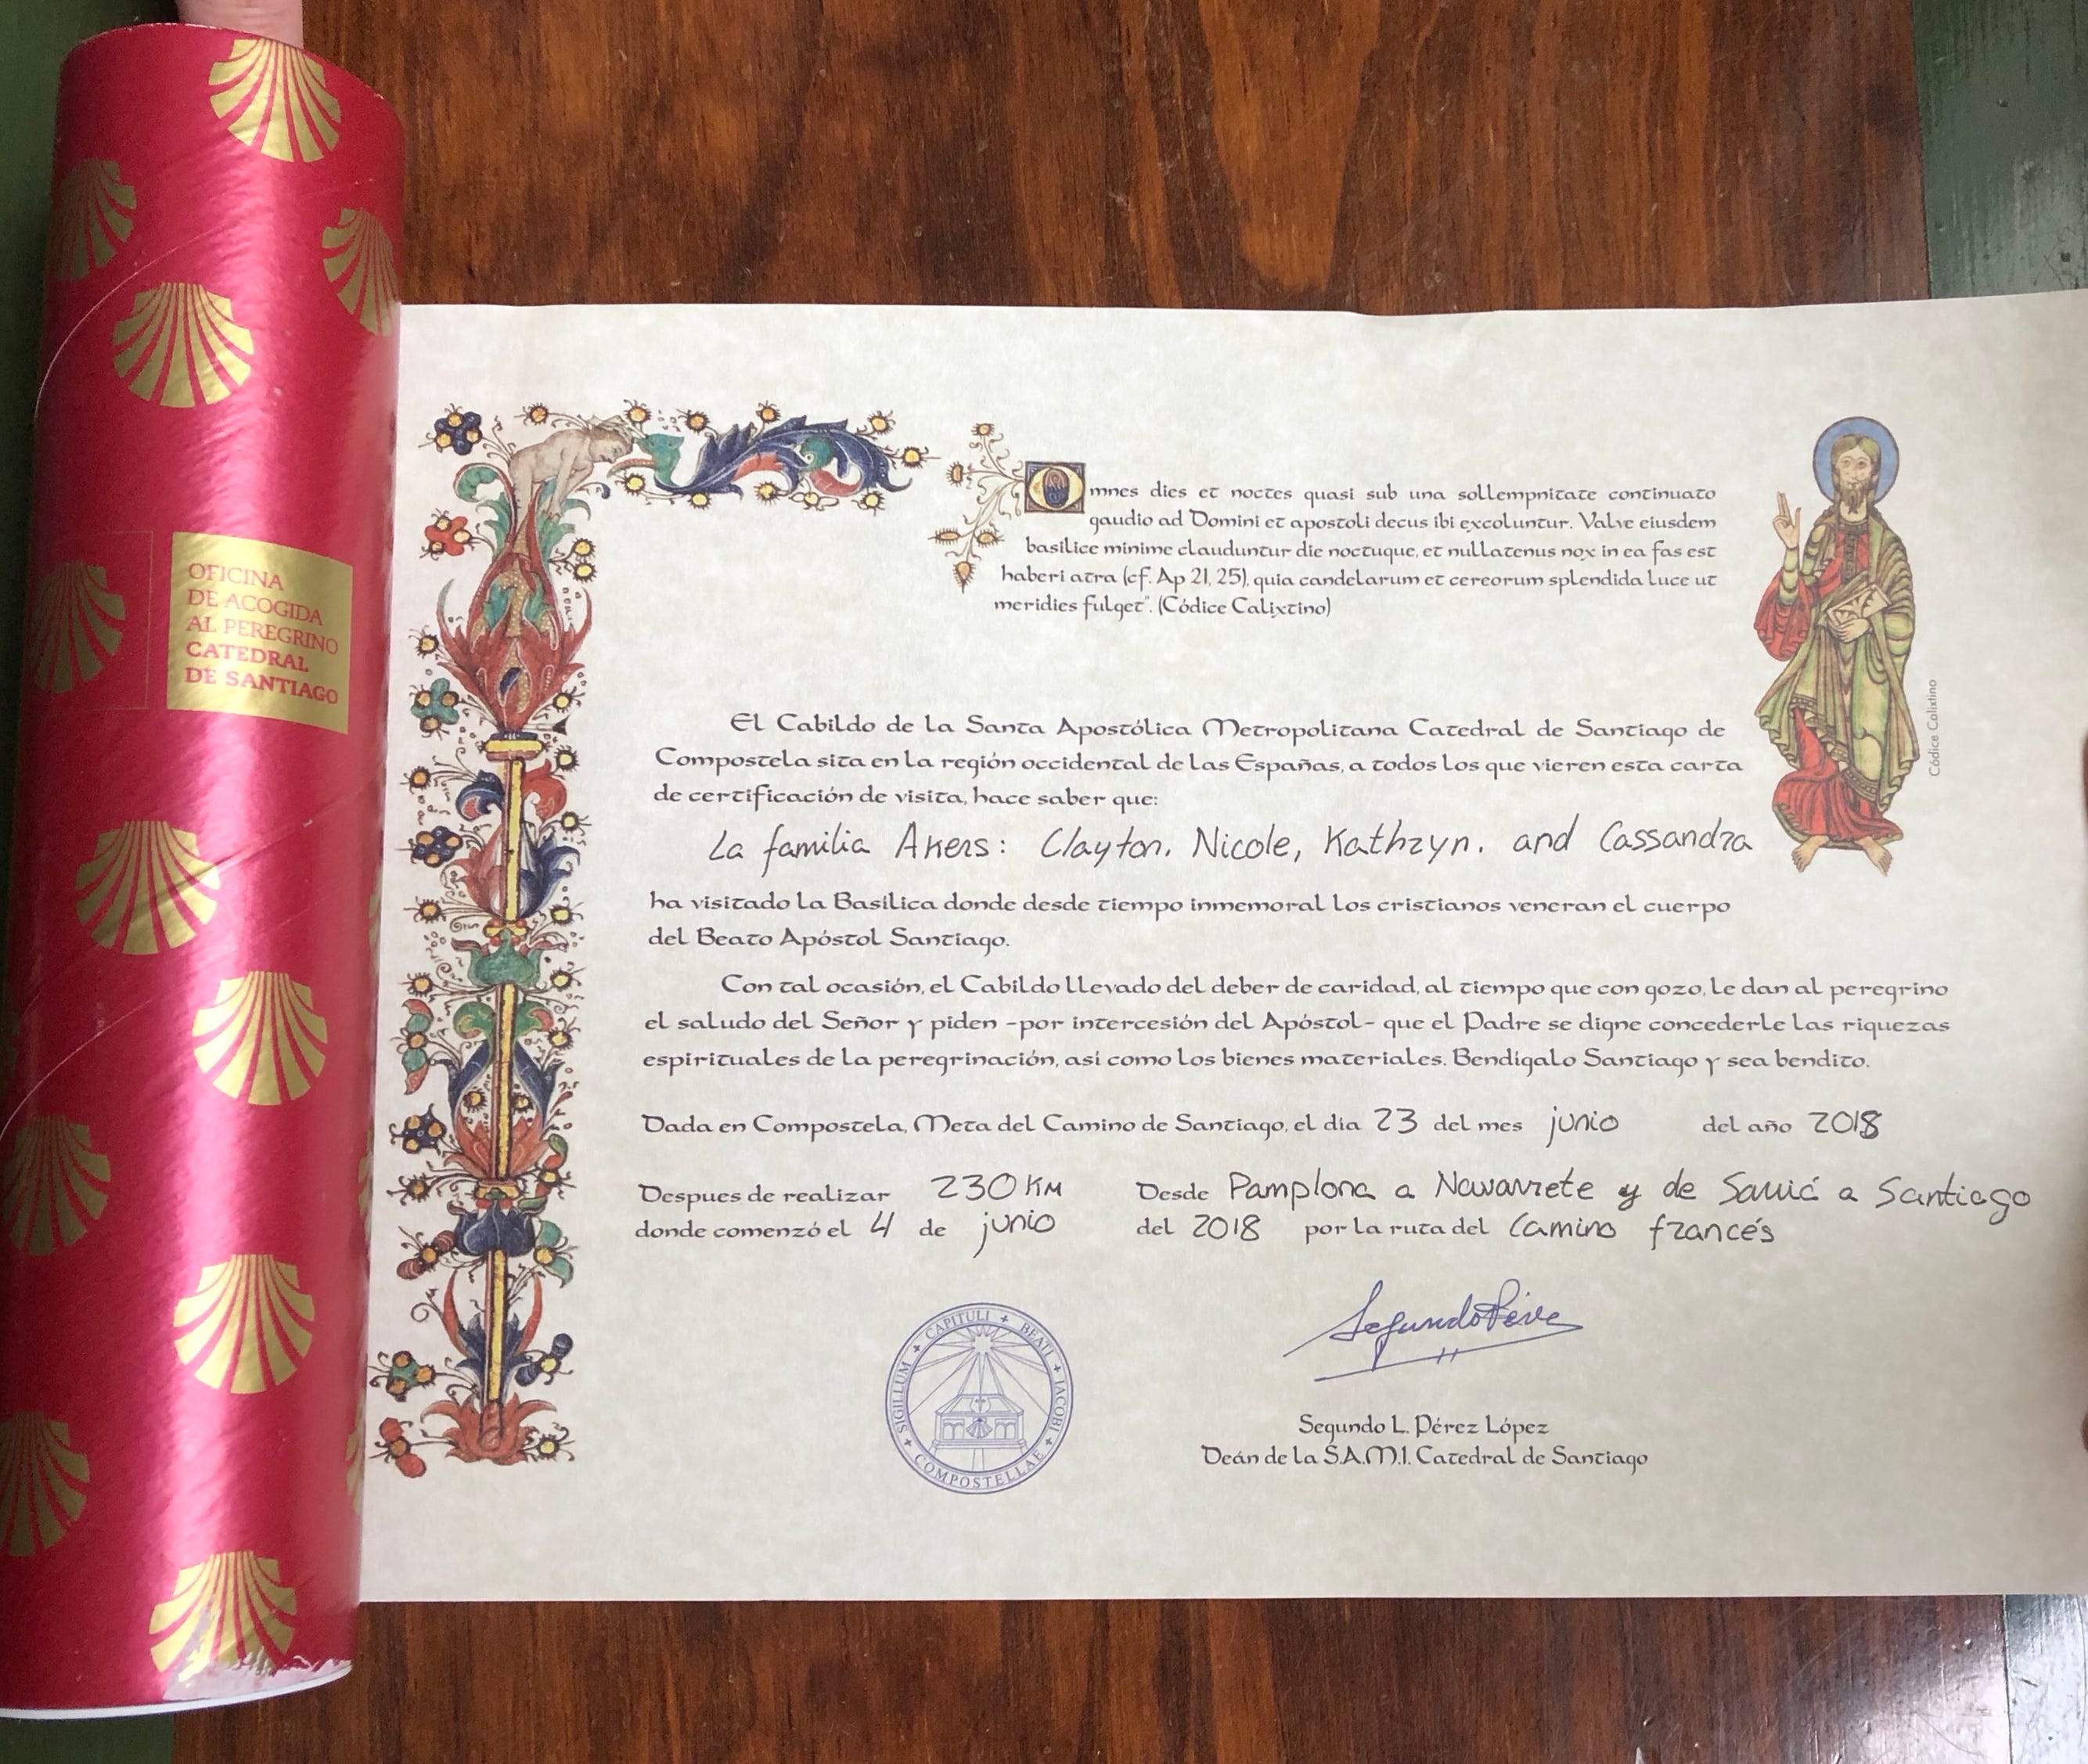 OFICINA
DE ACOGIDA
AL PEREGRINO
CATEDRAL
DE SANTIAGO
Omnes dies et noctes quasi sub una sollempnitate continuato
gaudio ad Domini et apostoli decus ibi excoluntur. Valve eiusdem
basilice minime clauduntur die noctuque, et nullatenus nox in ea fas est
haberi atra (cf. Ap 21, 25), quia candelarum et cereorum splendida luce ut
meridies fulget". (Códice Calixtino)
Códice Calixtino
El Cabildo de la Santa Apostólica Metropolitana Catedral de Santiago de
Compostela sita en la región occidental de las Españas, a todos los que vieren esta carta
de certificación de visita, hace saber que:
La familia Akers: Clayton, Nicole, Kathryn, and Cassandra
ha visitado la Basílica donde desde tiempo inmemoral los cristianos veneran el cuerpo
del Beato Apóstol Santiago.
Con tal ocasión, el Cabildo llevado del deber de caridad, al tiempo que con gozo, le dan al peregrino
el saludo del Señor y piden -por intercesión del Apóstol- que el Padre se digne concederle las riquezas
espirituales de la peregrinación, así como los bienes materiales. Bendígalo Santiago y sea bendito.
Dada en Compostela, Meta del Camino de Santiago, el día 23 del mes junio del año 2018
Despues de realizar 230 KM Desde Pamplona a Navarrete y de Sarriá a Santiago
donde comenzó el 4 de junio del 2018 por la ruta del Camino francés
SIGILLUM + CAPITULI + BEATI + IACOBI + COMPOSTELLAE +
Segundo Pérez
Segundo L. Pérez López
Deán de la S.A.M.I. Catedral de Santiago